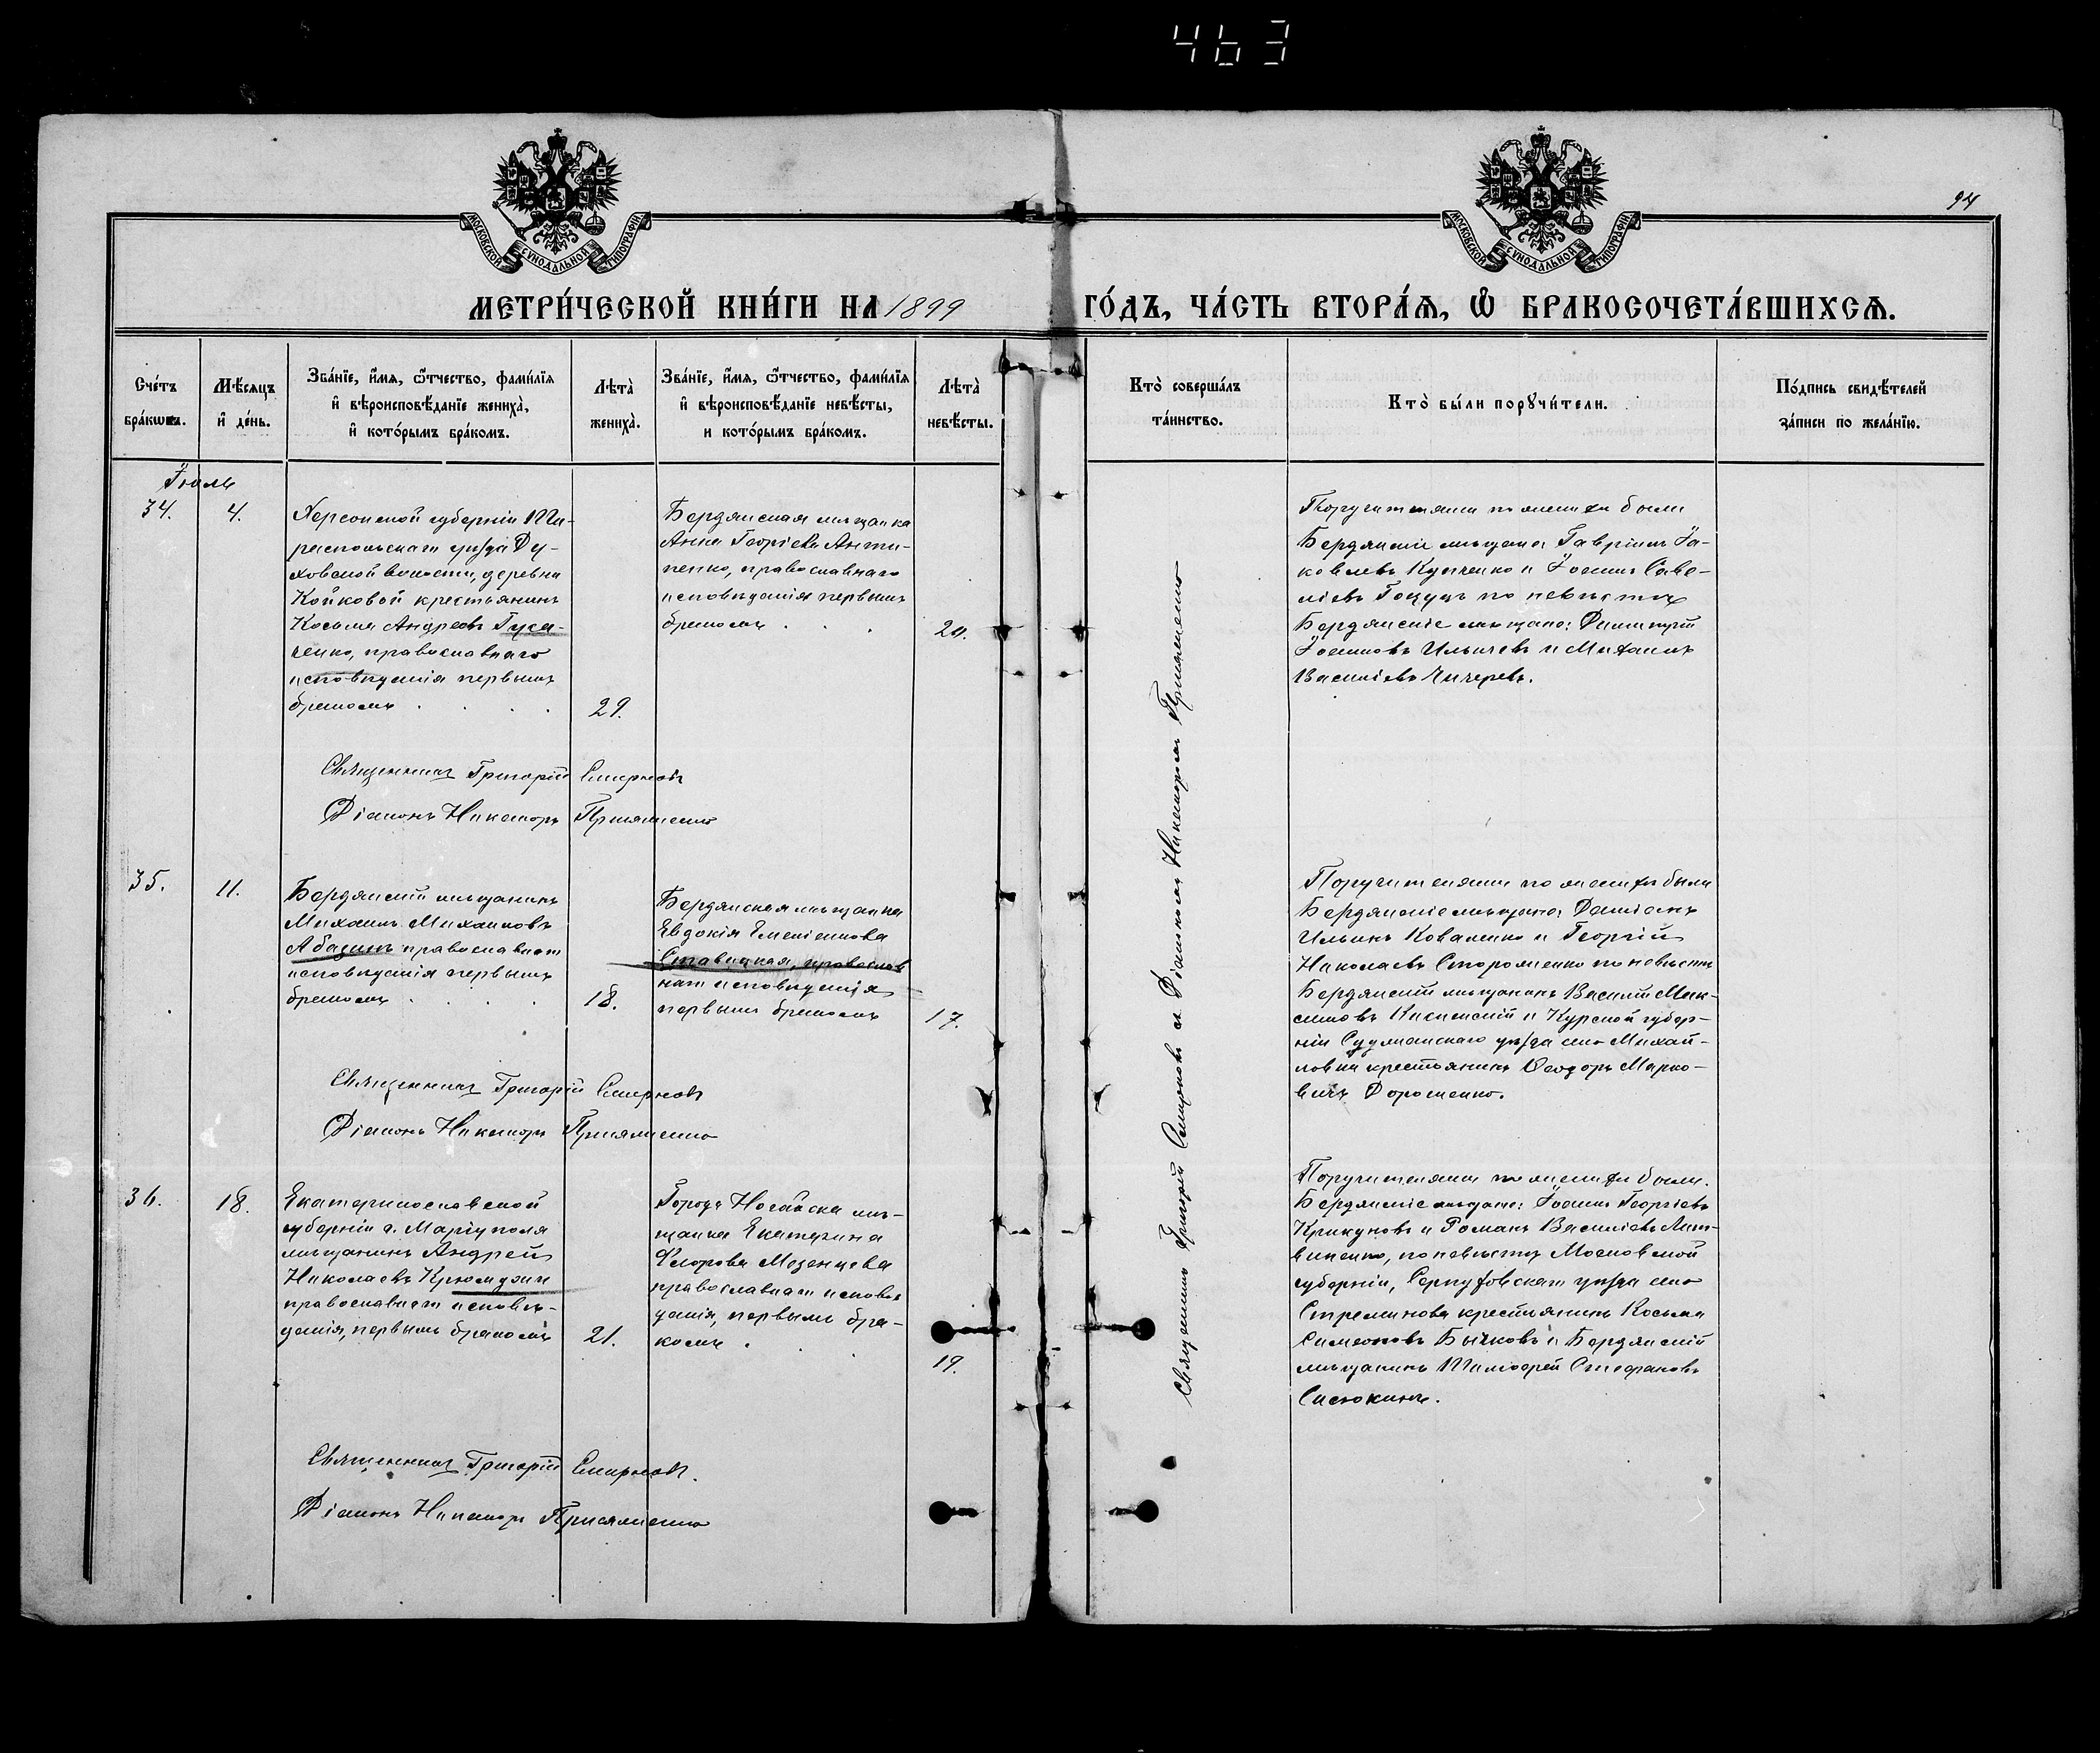 463
94
МОСКОВСКОЙ СѴНОДАЛЬНОЙ ТИПОГРАФІИ
МОСКОВСКОЙ СѴНОДАЛЬНОЙ ТИПОГРАФІИ
МЕТРИ́ЧЕСКОЙ КНИ́ГИ НА 1899 ГО́ДЪ, ЧА́СТЬ ВТОРА́Ѧ, Ѽ БРАКОСОЧЕТА́ВШИХСѦ.
Сче́тъ
бра́кωвъ.
Мѣ́сяцъ
и҆ де́нь.
Зва́нїе, и҆́мя, ѻ҆́тчество, фами́лїя
и҆ вѣроисповѣ́данїе жениха̀,
и҆ кото́рымъ бра́комъ.
Лѣта̀
жениха̀.
Зва́нїе, и҆́мя, ѻ҆́тчество, фами́лїя
и҆ вѣроисповѣ́данїе невѣ́сты,
и кото́рымъ бра́комъ.
Лѣта̀
невѣ́сты.
Кто̀ соверша́лъ
та́инство.
Кто̀ бы́ли порꙋчи́тели.
По́дпись свидѣ́телей
за́писи по жела́нїю.
Іюль
34.
4.
Херсонской губерніи Ти-
распольскаго уѣзда
волости, деревни
Койковой крестьянинъ
Косьма Андреевъ Гуса-
ченко, православнаго
исповѣданія первымъ
бракомъ
29.
Бердянская мѣщанка
Анна Георгіева Анти-
пенко, православнаго
исповѣданія первымъ
бракомъ
20.
Поручителями по женихѣ были
Бердянскіе мѣщане: Гавріилъ Іа-
ковлевъ и Іоаннъ Саве-
ліевъ по невѣстѣ
Бердянскіе мѣщане: Димитрій
Іоанновъ Ильичевъ и Михаилъ
Василіевъ Чичеревъ.
Священникъ Григорій Смирновъ
Діаконъ Никаноръ Присяженко
35.
11.
Бердянскій мѣщанинъ
Михаилъ Михаиловъ
Абазинъ православнаго
исповѣданія первымъ
бракомъ
18.
Бердянская мѣщанка
Евдокія
Ставицкая, православ
наго исповѣданія
первымъ бракомъ
17.
Поручителями по женихѣ были
Бердянскіе мѣщане: Даміанъ
Ильинъ Коваленко и Георгій
Николаевъ Стороженко по невѣстѣ
Бердянскій мѣщанинъ Василій Мак-
симовъ и Курской губер-
ніи Суджанскаго уѣзда села Михай-
ловки крестьянинъ Ѳеодоръ Марко-
вичъ Дорошенко.
Священникъ Григорій Смирновъ
Діаконъ Никаноръ Присяженко
36.
18.
Екатеринославской
губерніи г. Маріуполя
мѣщанинъ Андрей
Николаевъ
православнаго исповѣ-
данія, первымъ бракомъ
21.
Города Ногайска мѣ-
щанка Екатерина
Флорова Мезенцева
православнаго исповѣ
данія, первымъ бра-
комъ
19.
Поручителями по женихѣ были.
Бердянскіе мѣщане: Іоаннъ Георгіевъ
Крикуновъ и Романъ Василіевъ Лит-
виненко, по невѣстѣ Московской
губерніи, Серпуховскаго уѣзда села
Стремилова крестьянинъ Косьма
Симеоновъ Бычковъ и Бердянскій
мѣщанинъ Тимофей Стефановъ
Сисюкинъ.
Священникъ Григорій Смирновъ.
Діаконъ Никаноръ Присяженко
Священникъ Григорій Смирновъ съ Діакономъ Никаноромъ Присяженко